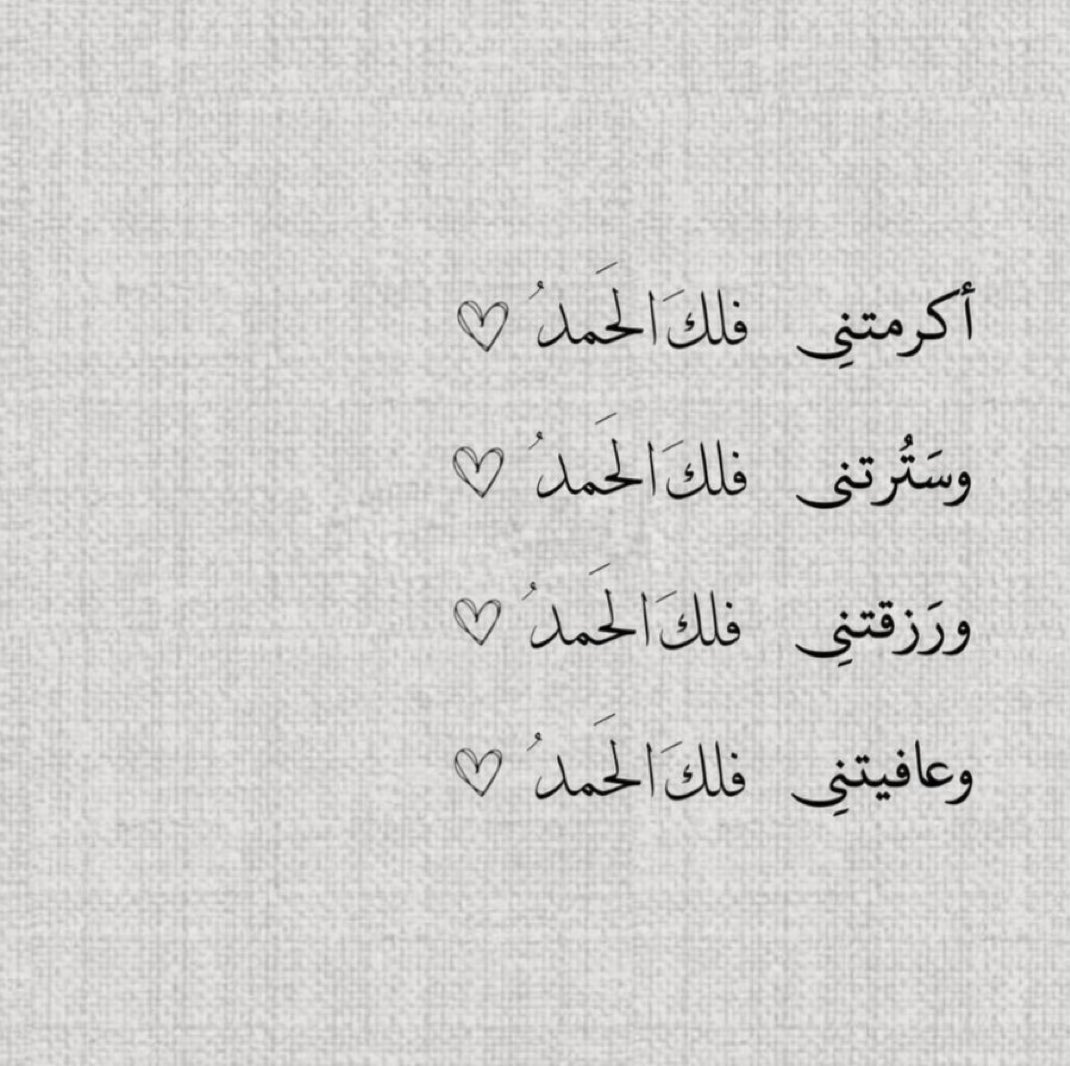 أكرمتنِى فلكَ الحَمدُ ♡
وسَتُرتنى فلكَ الحَمدُ ♡
ورَزقتنِى فلكَ الحَمدُ ♡
وعافيتنِى فلكَ الحَمدُ ♡